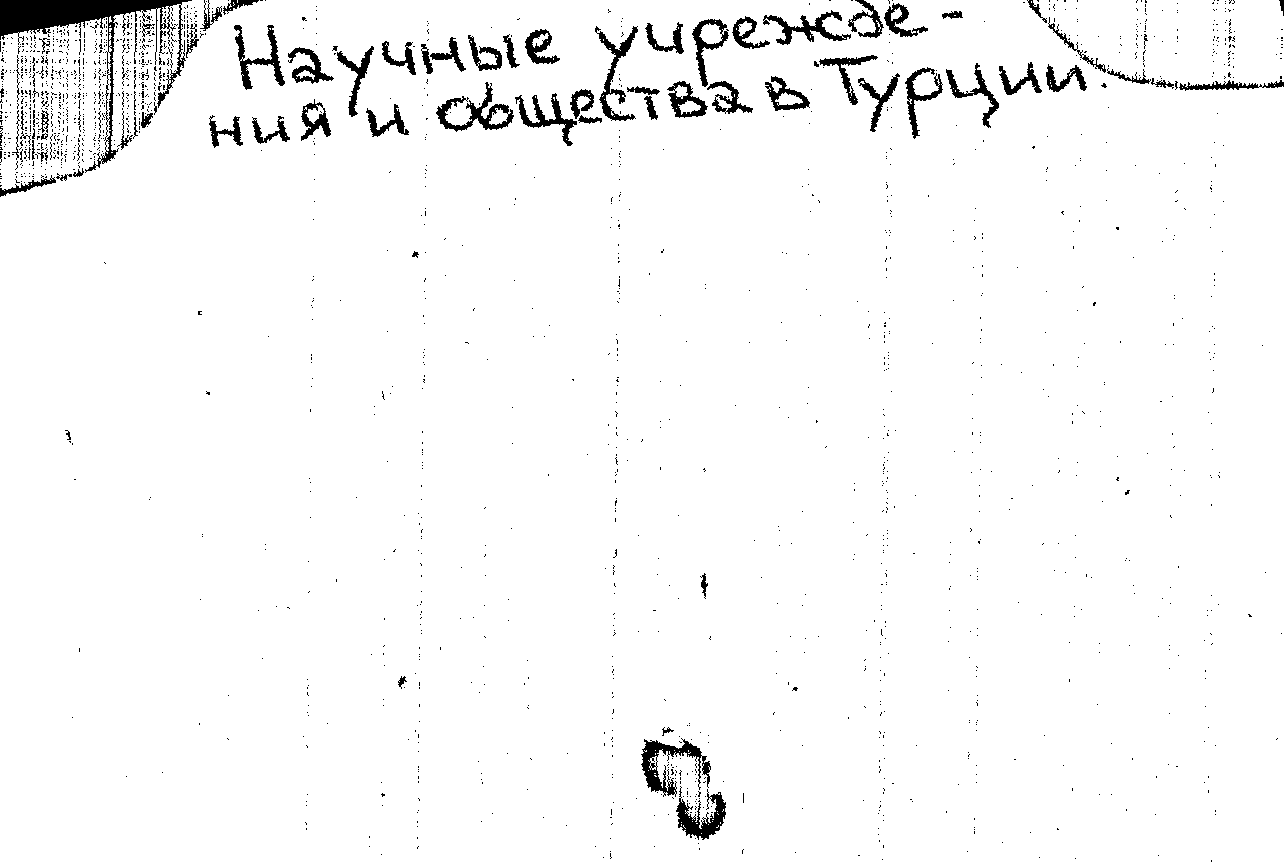 Научные учрежде-
ния и общества в Турции.